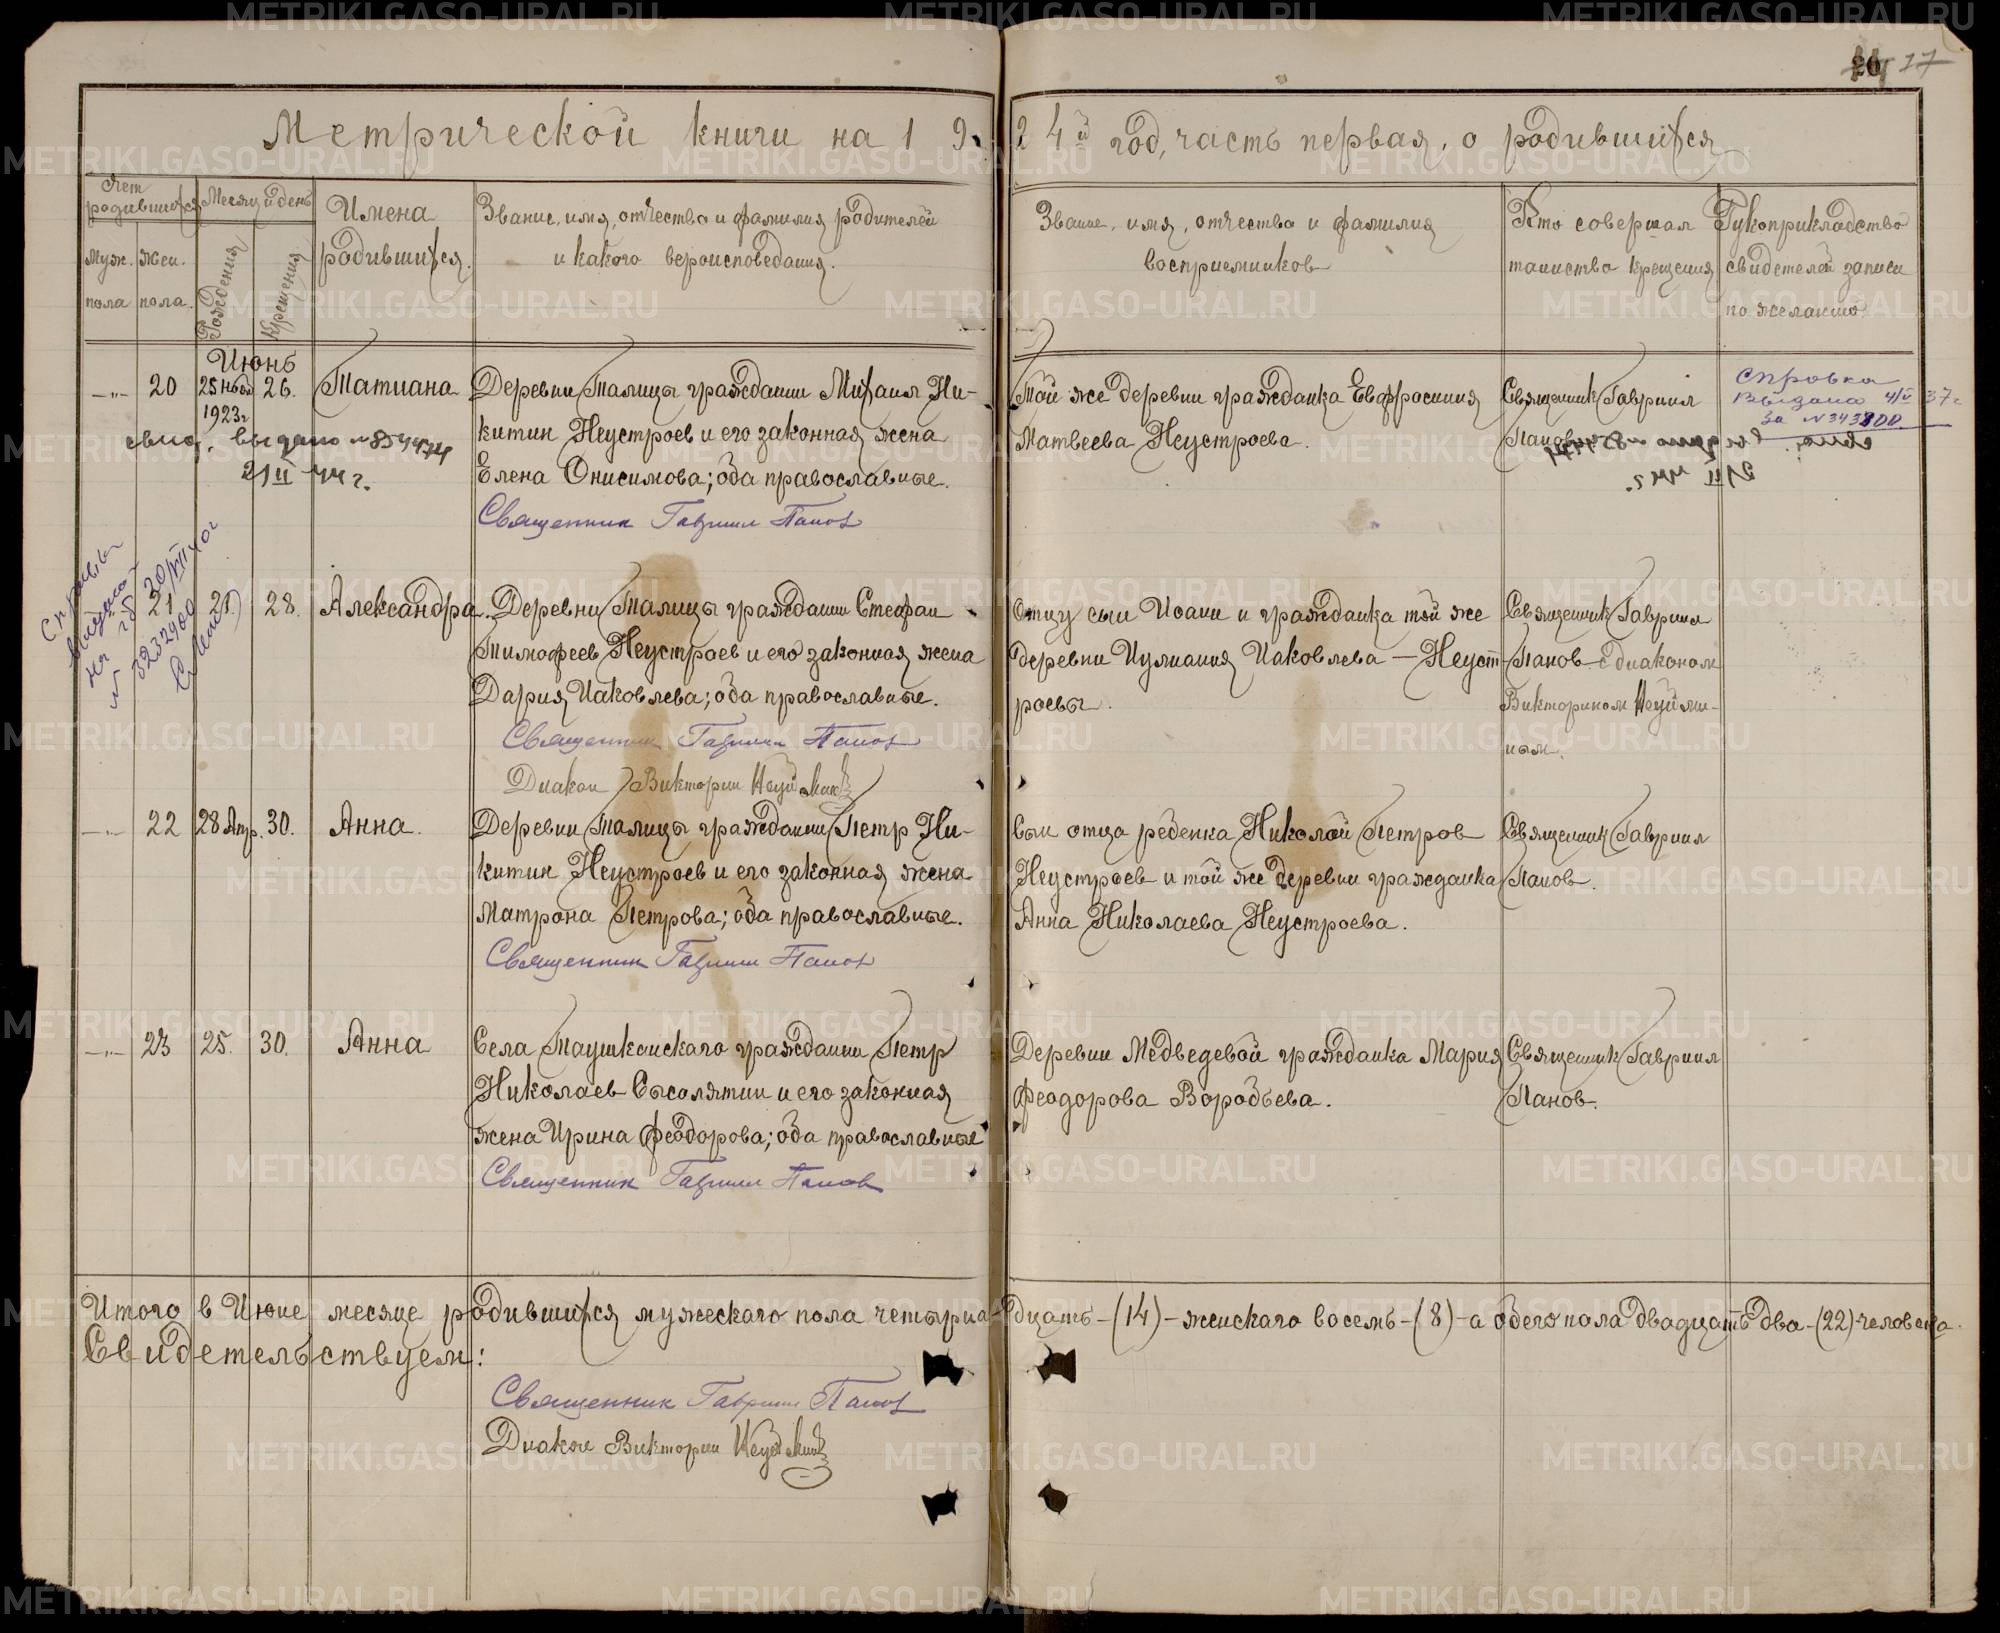 26 27
Метрической книги на 1924й год, часть первая, о родившихся
Счет родившихся
Муж. пола
Жен. пола.
Месяц и день
Рождения
Крещения
Имена родившихся.
Звание, имя, отчество и фамилия родителей
и какого вероисповедания.
Звание, имя, отчество и фамилия
восприемников
Кто совершал
таинство крещения
Рукоприкладство
свидетелей записи
по желанию.
Июнь
-"- 20 25 Нояб. 1923г 26. Татиана
Деревни Талицы гражданин Михаил Ни-
китин Неустроев и его законная жена
Елена Онисимова; оба православные.
Священник Гавриил Панов
Той же деревни гражданка Евфросиния
Матвеева Неустроева.
Священник Гавриил
Панов
Справка
выдана 4/V 37г
за №343800.
свид. выдано №854474
21 II 44 г.
Справка
выдана
20/VIII 40г
№ 3232900
21 21. 28. Александра.
Деревни Талицы гражданин Стефан
Тимофеев Неустроев и его законная жена
Дария Иаковлева; оба православные.
Священник Гавриил Панов
Диакон Викторин Неуймин
Отцу сын Иоанн и гражданка той же
деревни Иулиания Иаковлева — Неуст-
роевы.
Священник Гавриил
Панов с диаконом
Викторином Неуйми-
ным.
-"- 22 28 Апр. 30. Анна.
Деревни Талицы гражданин Петр Ни-
китин Неустроев и его законная жена
Матрона Петрова; оба православные.
Священник Гавриил Панов
Сын отца ребенка Николай Петров
Неустроев и той же деревни гражданка
Анна Николаева Неустроева.
Священник Гавриил
Панов.
-"- 23 25. 30. Анна
Села Таушканского гражданин Петр
Николаев Сысолятин и его законная
жена Ирина Феодорова; оба православные
Священник Гавриил Панов
Деревни Медведевой гражданка Мария
Феодорова Воробьева.
Священник Гавриил
Панов.
Итого в Июне месяце родившихся мужескаго пола четырнадцать-(14)-женскаго восемь-(8)-а обего пола двадцать два-(22)-человека.
Свидетельствуем:
Священник Гавриил Панов
Диакон Викторин Неуймин
METRIKI.GASO-URAL.RU